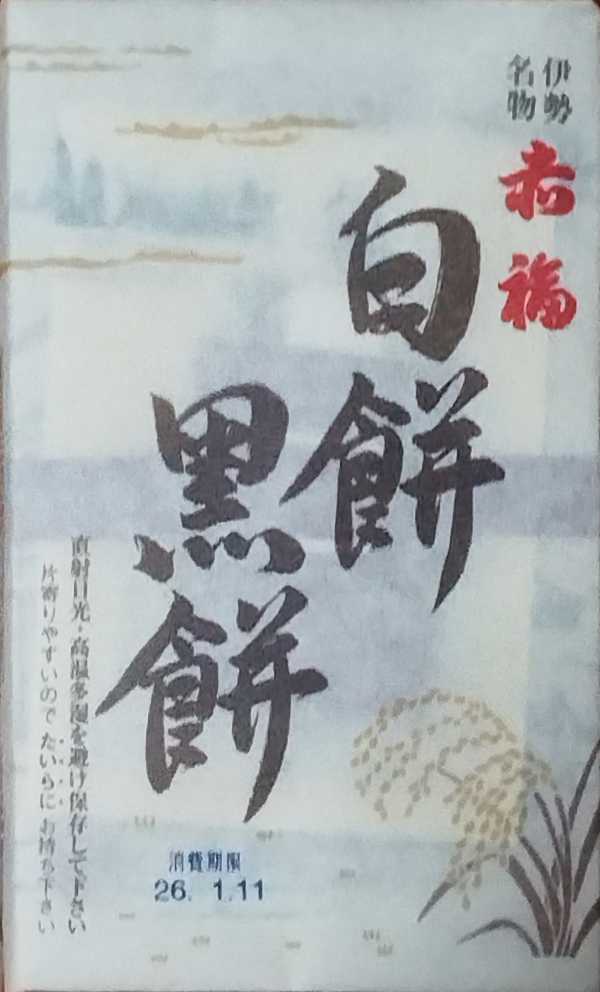 伊勢
名物
赤福
白餅
黒餅
直射日光・高温多湿を避け保存して下さい
片寄りやすいので たいらに お持ち下さい
消費期限
26. 1.11